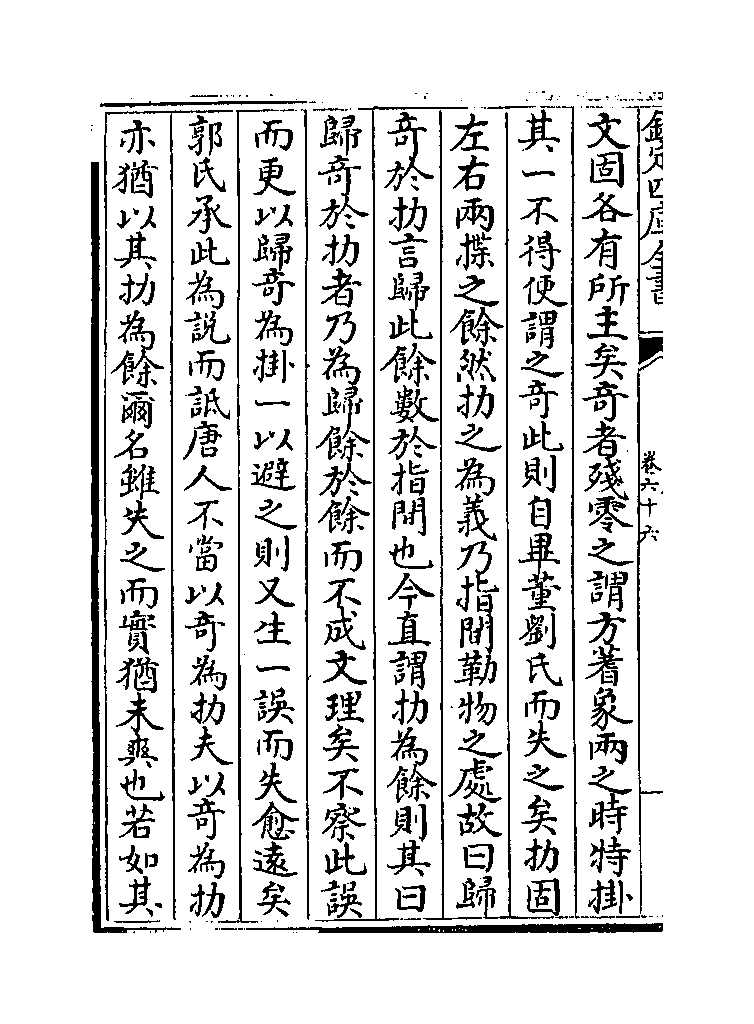 欽定四庫全書
卷六十六
文固各有所主矣竒者殘零之謂方蓍象兩之時特掛
其一不得便謂之竒此則自畢董劉氏而失之矣扐固
左右兩揲之餘然扐之為義乃指間勒物之處故曰歸
竒於扐言歸此餘數於指間也今直謂扐為餘則其曰
歸竒於扐者乃為歸餘於餘而不成文理矣不察此誤
而更以歸竒為掛一以避之則又生一誤而失愈逺矣
郭氏承此為説而詆唐人不當以竒為扐夫以竒為扐
亦猶以其扐為餘爾名雖失之而實猶未爽也若如其